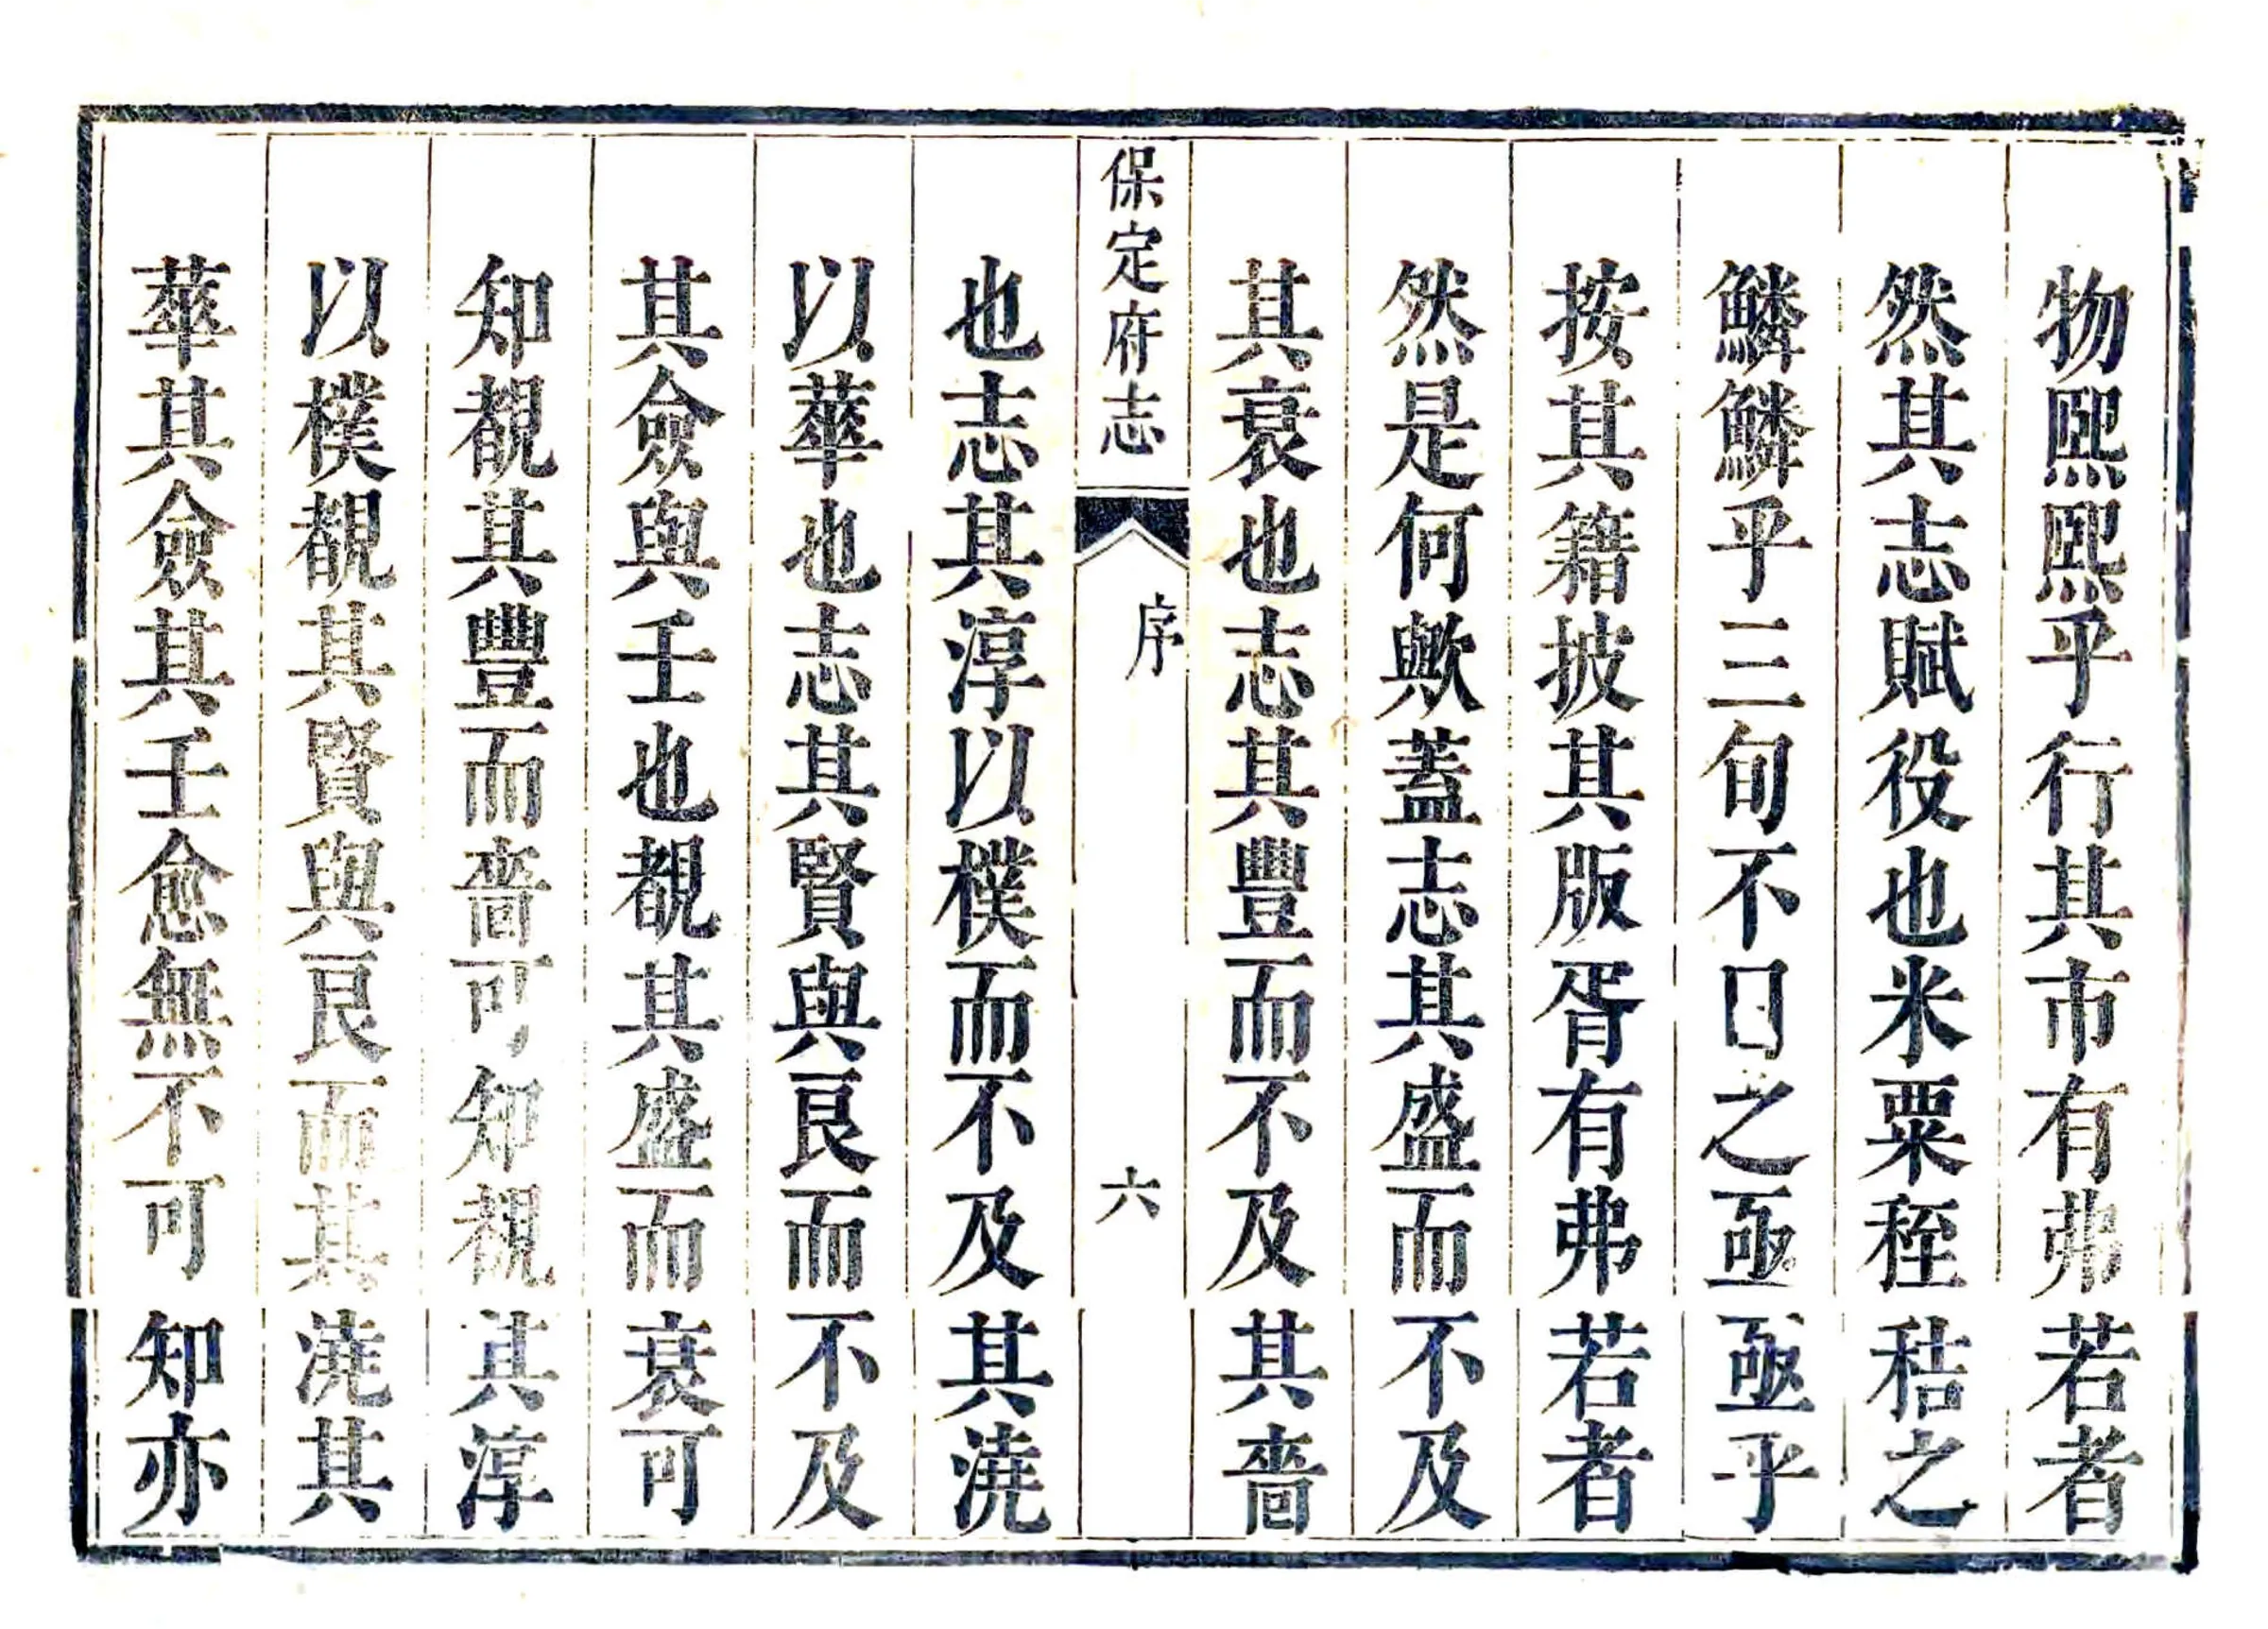 物熙熙乎行其市有弗若者
然其志賦役也米粟秷秸之
鱗鱗乎三旬不日之亟亟乎
按其籍披其版胥有弗若者
然是何歟蓋志其盛而不及
其衰也志其豐而不及其嗇
保定府志
序
六
也志其淳以樸而不及其澆
以華也志其賢與良而不及
其僉與壬也覩其盛而衰可
知覩其豐而嗇可知覩其淳
以樸覩其賢與良而其澆其
華其僉其壬愈無不可知亦